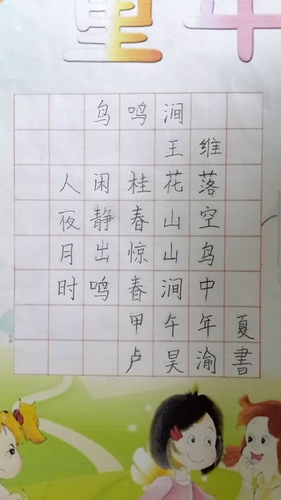 鸟鸣涧
王维
人闲桂花落
夜静春山空
月出惊山鸟
时鸣春涧中
甲午年夏
卢昊渝書